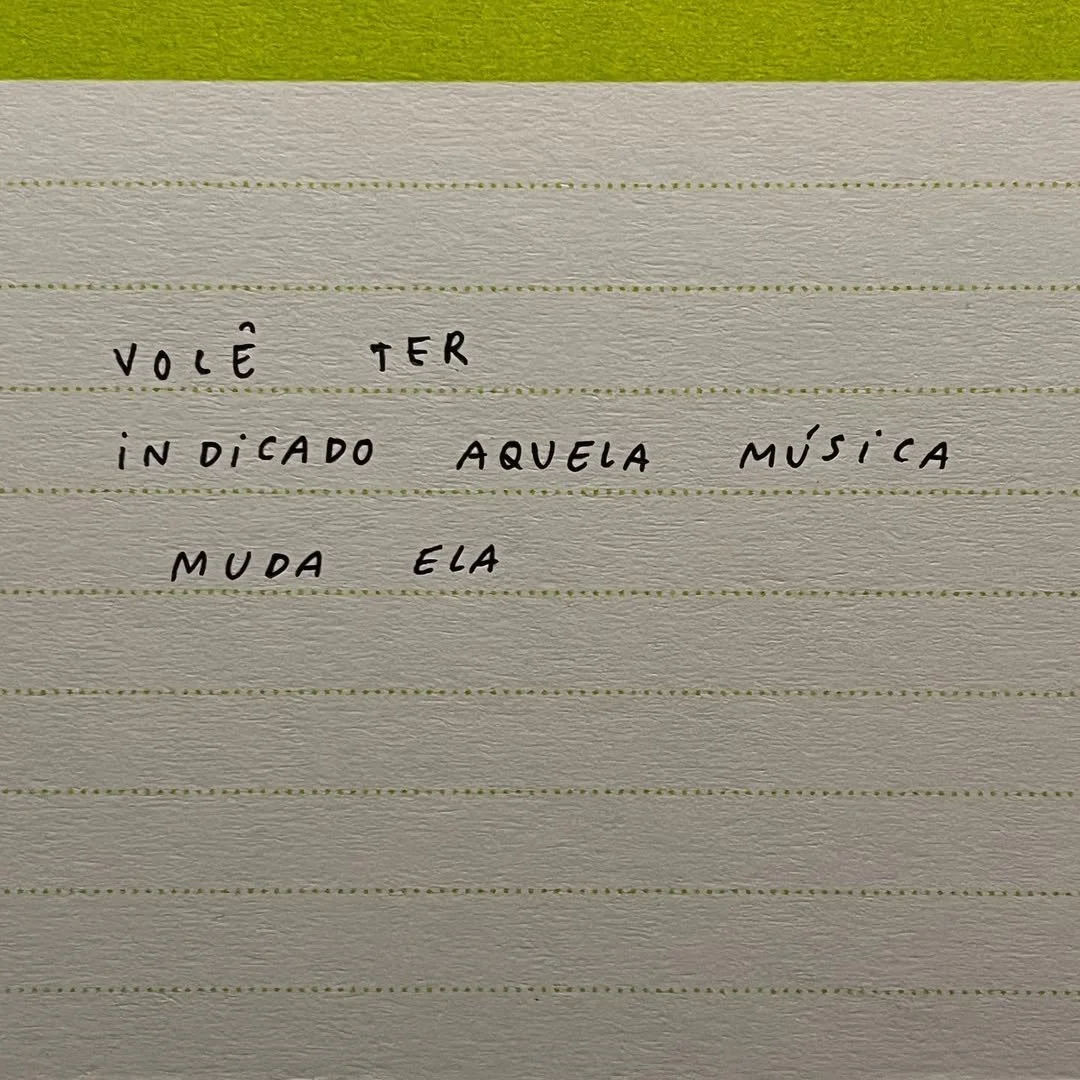 VOCÊ TER
iNDiCADO AQUELA MÚSiCA
MUDA ELA